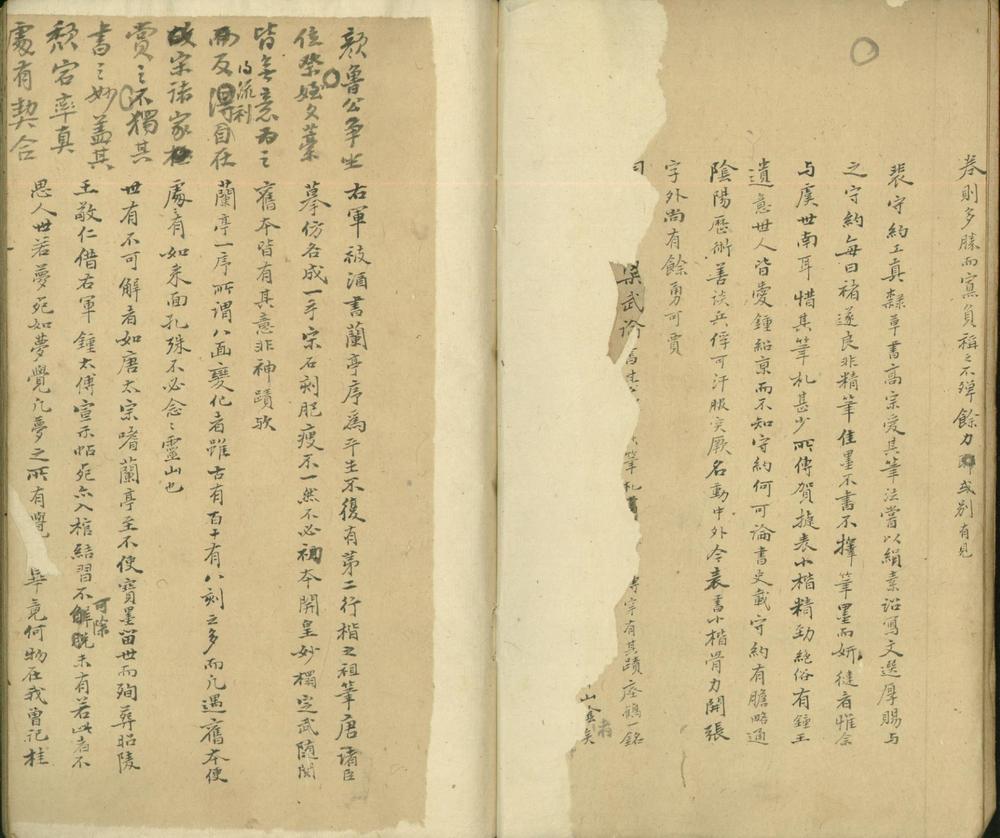 卷則多賺而寫負稱之不殫餘力或別有見
裴守約工真隸草書高宗愛其筆法當以絹素詔寫文選厚賜与
之守約每曰褚遂良非精筆佳墨不書不擇筆墨而妍徤者惟余
与虞世南耳惜其筆札甚少所傳賀捷表小楷精勁絕俗有鍾王
遺意世人皆愛鍾紹京而不知守約何可論書史載守約有膽略通
陰陽歷術善談兵俘可汗服突厥名動中外今表書小楷骨力開張
字外尚有餘勇可賈
梁武論 筆札 字有其蹟瘞鶴一銘
顏魯公爭坐
位祭姪文藁
皆無意為之
而反得自在
流利
故宋諸家極
賞之不獨其
書之妙蓋其
頹宕率真
處有契合
右軍被酒書蘭亭序為平生不復有第二行楷之祖筆唐諸臣
摹仿各成一手宋石刻肥瘦不一然不必初本開皇妙樻定武隨開
舊本皆有其意非神蹟欤
蘭亭一序所謂八面變化者雖古有百十有八刻之多而凡遇舊本便
處有如来面孔殊不必念之靈山也
世有不可解者如唐太宗嗜蘭亭至不使寶墨留世而殉葬昭陵
王敬仁借右軍鍾太傅宣示帖死亦入棺結習不解脫未有若此者不
可除
思人世若夢死如夢覺凡夢之所有覺 畢竟何物在我曾記桂